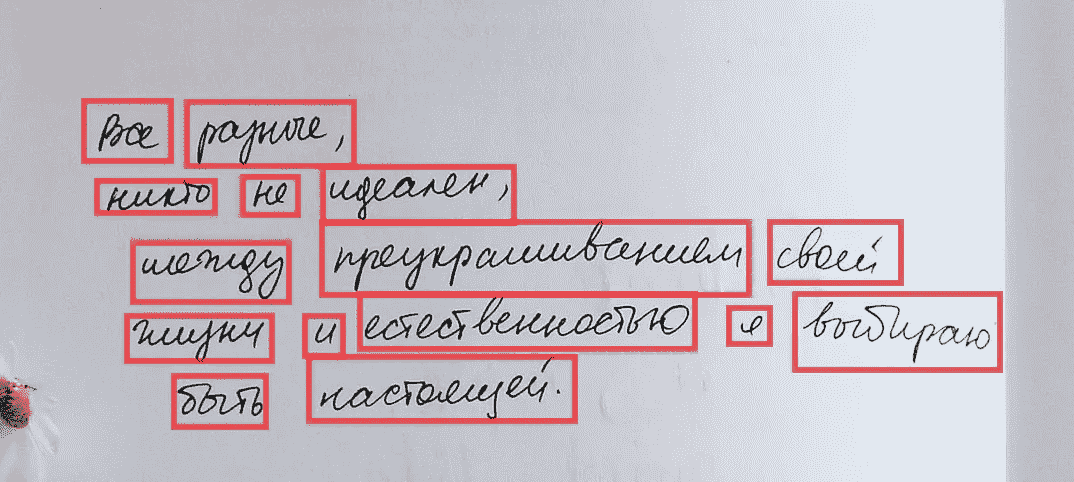 Все разные,
никто не идеален,
между преукрашиванием своей
жизни и естественностью я выбираю
быть настоящей.